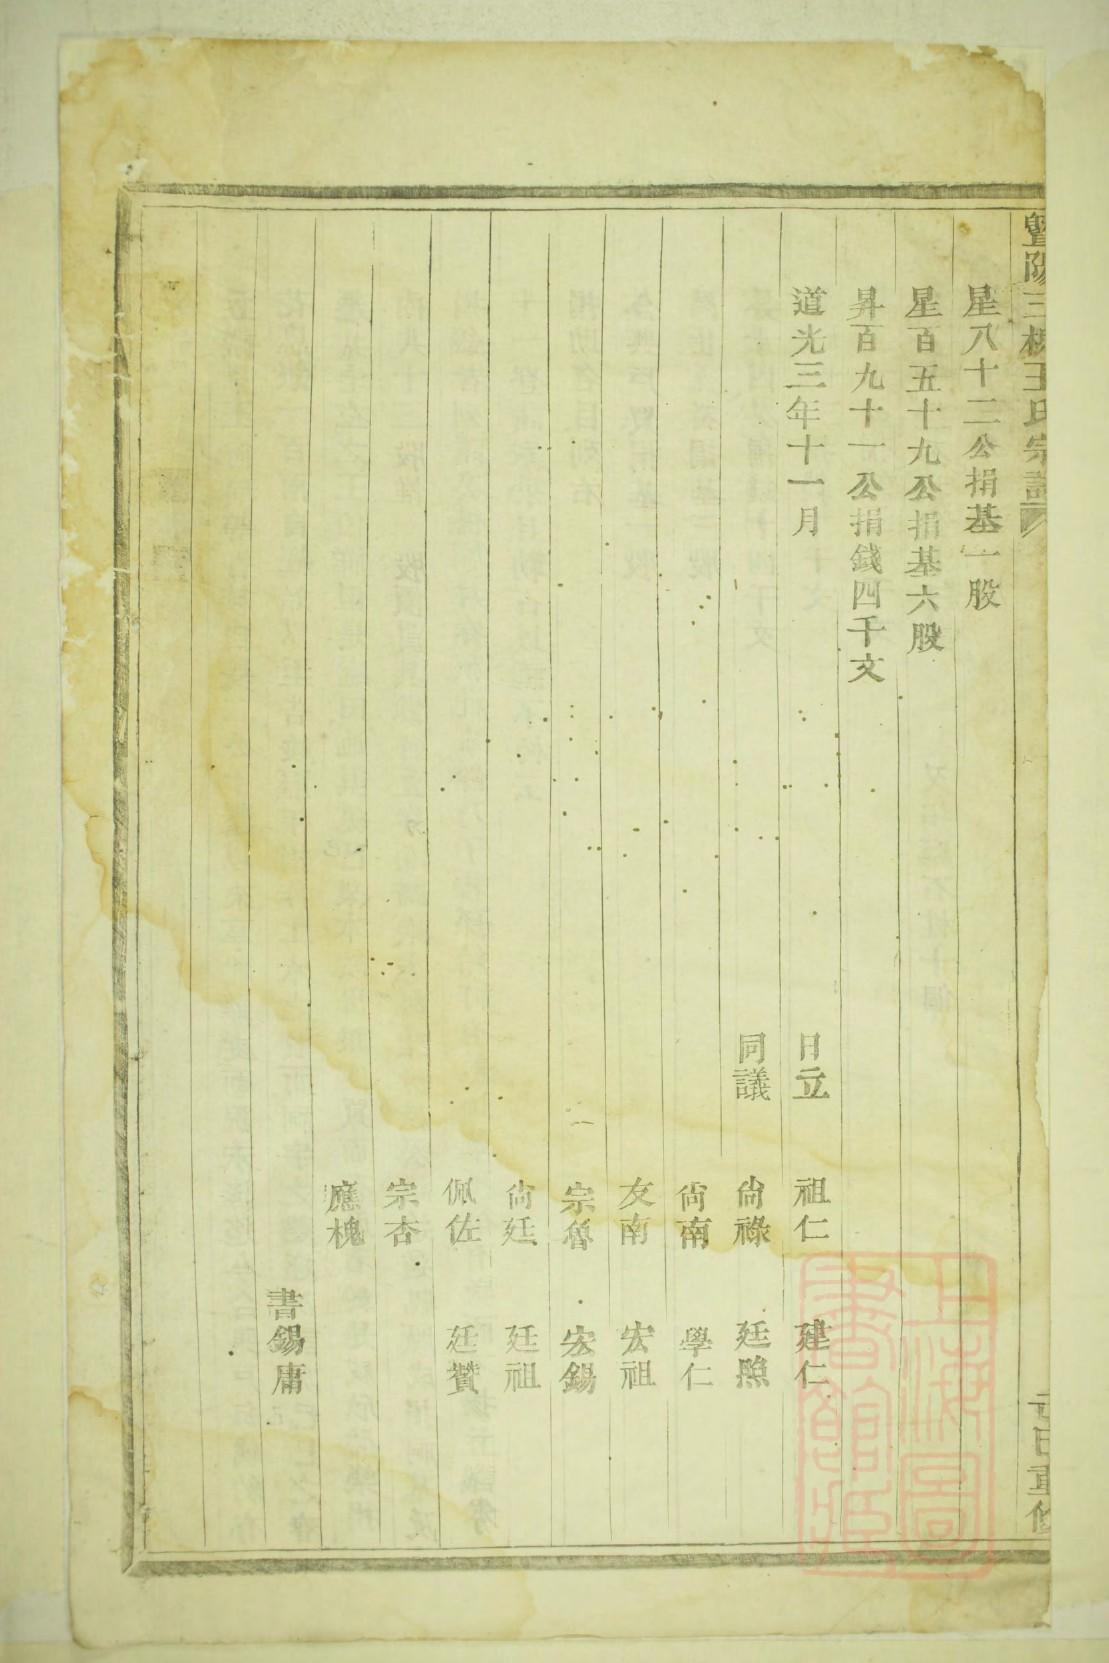 暨陽三槐王氏宗譜
星八十二公捐基一股
星百五十九公捐基六股
昇百九十一公捐錢四千文
道光三年十一月 日立 祖仁 建仁
同議 尙祿 廷照
尙南 學仁
友南 宏祖
宗魯 宏錫
尙廷 廷祖
佩佐 廷贊
宗杏
應槐
書錫庸
上海圖書館藏